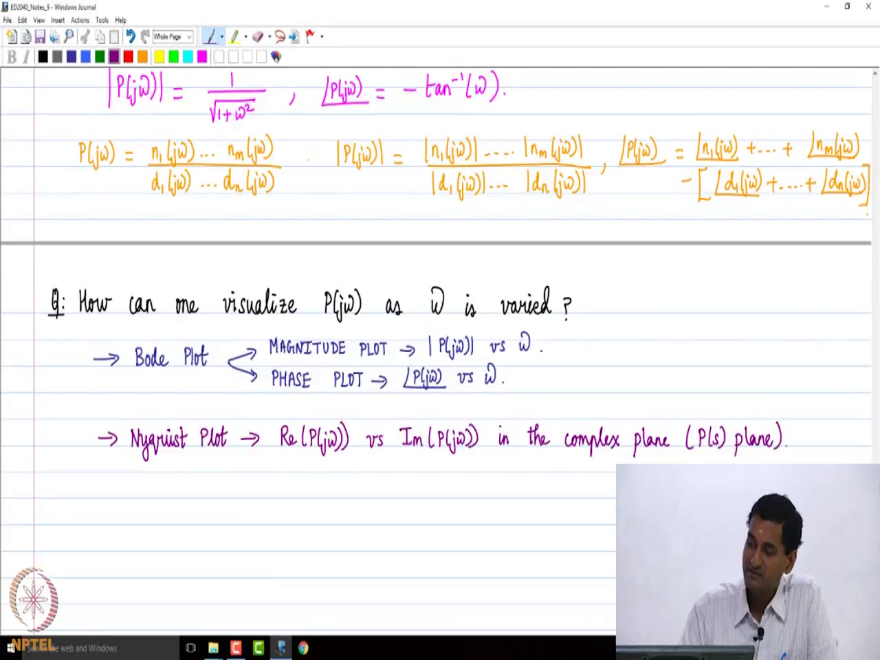 ED2040_Notes_9 - Windows Journal
File Edit View Insert Actions Tools Help
Whole Page
B I
|P(jω)| = 1/√(1+ω²) , ∠P(jω) = - tan⁻¹(ω).
P(jω) = n₁(jω)... nₘ(jω) / d₁(jω) ... dₙ(jω) . |P(jω)| = |n₁(jω)| ..... |nₘ(jω)| / |d₁(jω)|... |dₙ(jω)| , ∠P(jω) = ∠n₁(jω) +...+ ∠nₘ(jω)
- [∠d₁(jω) +....+ ∠dₙ(jω)]
Q: How can one visualize P(jω) as ω is varied?
→ Bode Plot
→ MAGNITUDE PLOT → |P(jω)| vs ω.
→ PHASE PLOT → ∠P(jω) vs ω.
→ Nyquist Plot → Re(P(jω)) vs Im(P(jω)) in the complex plane (P(s) plane).
NPTEL
the web and Windows